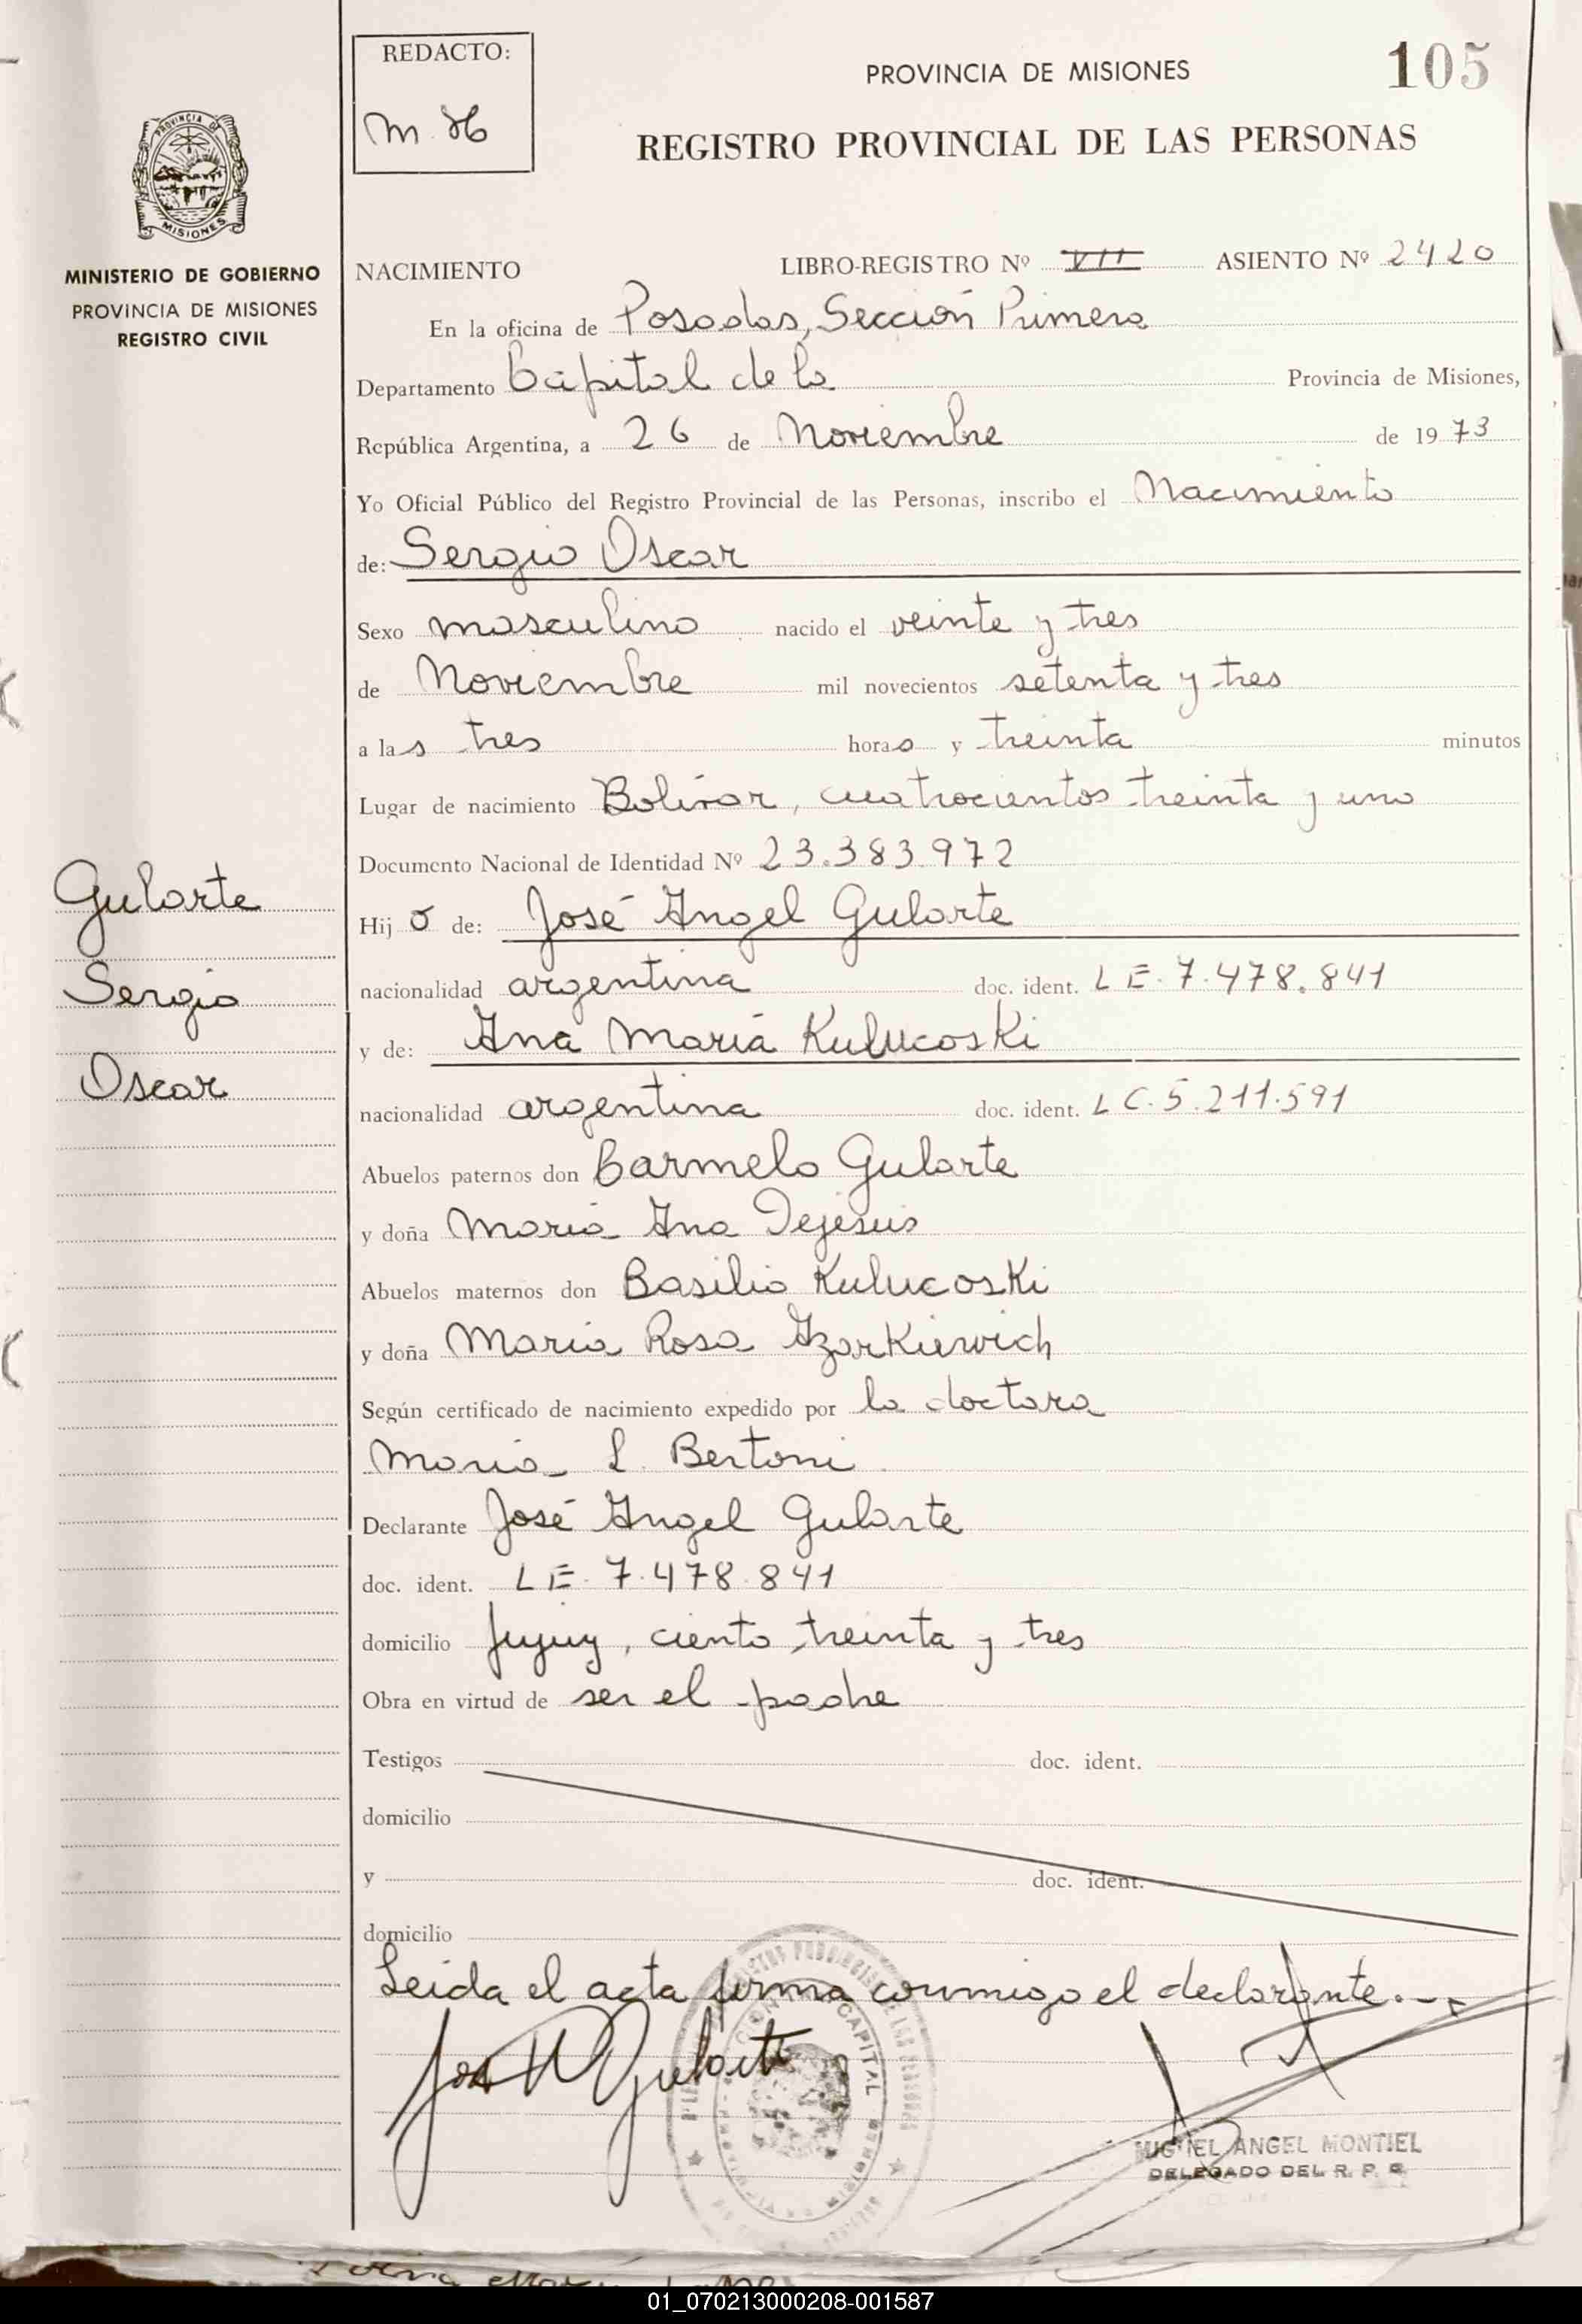 REDACTO:
PROVINCIA DE MISIONES
105
REGISTRO PROVINCIAL DE LAS PERSONAS
PROVINCIA DE
MISIONES
MINISTERIO DE GOBIERNO
PROVINCIA DE MISIONES
REGISTRO CIVIL
NACIMIENTO LIBRO-REGISTRO Nº VII ASIENTO Nº 2420
En la oficina de Posadas, Sección Primera
Departamento Capital de la Provincia de Misiones,
República Argentina, a 26 de Noviembre de 1973
Yo Oficial Público del Registro Provincial de las Personas, inscribo el Nacimiento
de: Sergio Oscar
Sexo masculino nacido el veinte y tres
de Noviembre mil novecientos setenta y tres
a las tres horas y treinta minutos
Lugar de nacimiento Bolívar, cuatrocientos treinta y uno
Documento Nacional de Identidad Nº 23.383.972
Gularte
Sergio
Oscar
Hijo de: José Angel Gularte
nacionalidad argentina doc. ident. LE. 7.478.841
y de: Ana María Kulucoski
nacionalidad argentina doc. ident. LC. 5.211.591
Abuelos paternos don Carmelo Gularte
y doña María Ana Dejesús
Abuelos maternos don Basilio Kulucoski
y doña María Rosa Azarkievich
Según certificado de nacimiento expedido por la doctora
María L. Bertoni
Declarante José Angel Gularte
doc. ident. LE. 7.478.841
domicilio Jujuy, ciento treinta y tres
Obra en virtud de ser el padre
Testigos doc. ident.
domicilio
y doc. ident.
domicilio
Leida el acta firma conmigo el declarante.--
MIGUEL ANGEL MONTIEL
DELEGADO DEL R. P. P.
01_070213000208-001587